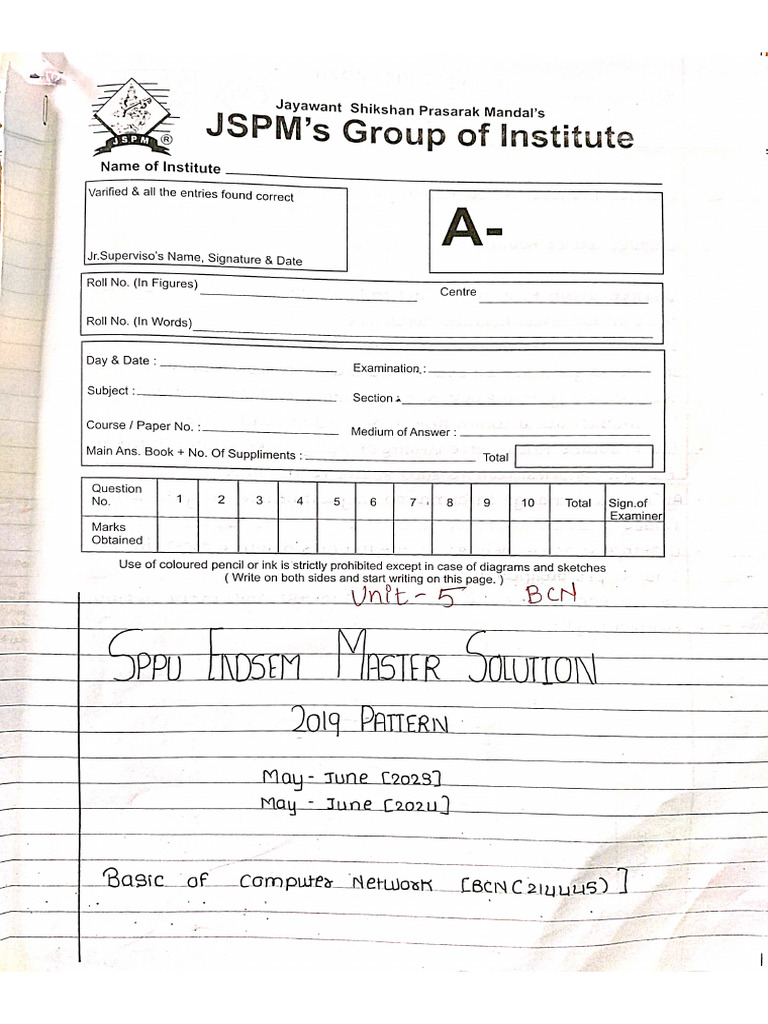 Jayawant Shikshan Prasarak Mandal's
JSPM's Group of Institute
JSPM ®
Name of Institute
Varified & all the entries found correct
Jr.Superviso's Name, Signature & Date
A-
Roll No. (In Figures)
Centre
Roll No. (In Words)
Day & Date :
Examination :
Subject :
Section :
Course / Paper No. :
Medium of Answer :
Main Ans. Book + No. Of Suppliments :
Total
Question No. 1 2 3 4 5 6 7 8 9 10 Total Sign.of Examiner
Marks Obtained
Use of coloured pencil or ink is strictly prohibited except in case of diagrams and sketches
( Write on both sides and start writing on this page. )
Unit - 5 BCN
SPPU ENDSEM MASTER SOLUTION
2019 PATTERN
May - June [2023]
May - June [2024]
Basic of Computer Network [BCN (214445)]